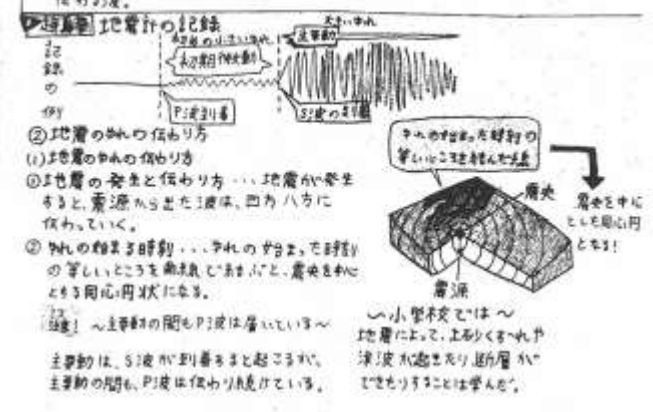 超重要 地震計の記録
記録の例
初めの小さいゆれ
初期微動
大きいゆれ
主要動
P波到着
S波の到着
②地震のゆれの伝わり方
(1)地震のゆれの伝わり方
①地震の発生と伝わり方・・・地震が発生
すると、震源から出た波は、四方八方に
伝わっていく。
②ゆれの始まる時刻・・・ゆれの始まった時刻
の等しいところを曲線で結ぶと、震央を中心
とする同心円状になる。
ミス注意! ~主要動の間もP波は届いている~
主要動は、S波が到着すると起こるが、
主要動の間も、P波は伝わり続けている。
ゆれの始まった時刻の
等しいところを結んだ線
震央
震央を中心
とした同心円
となる!
震源
~小学校では~
地震によって、土砂くずれや
津波が起きたり、断層が
できたりすることは学んだ。